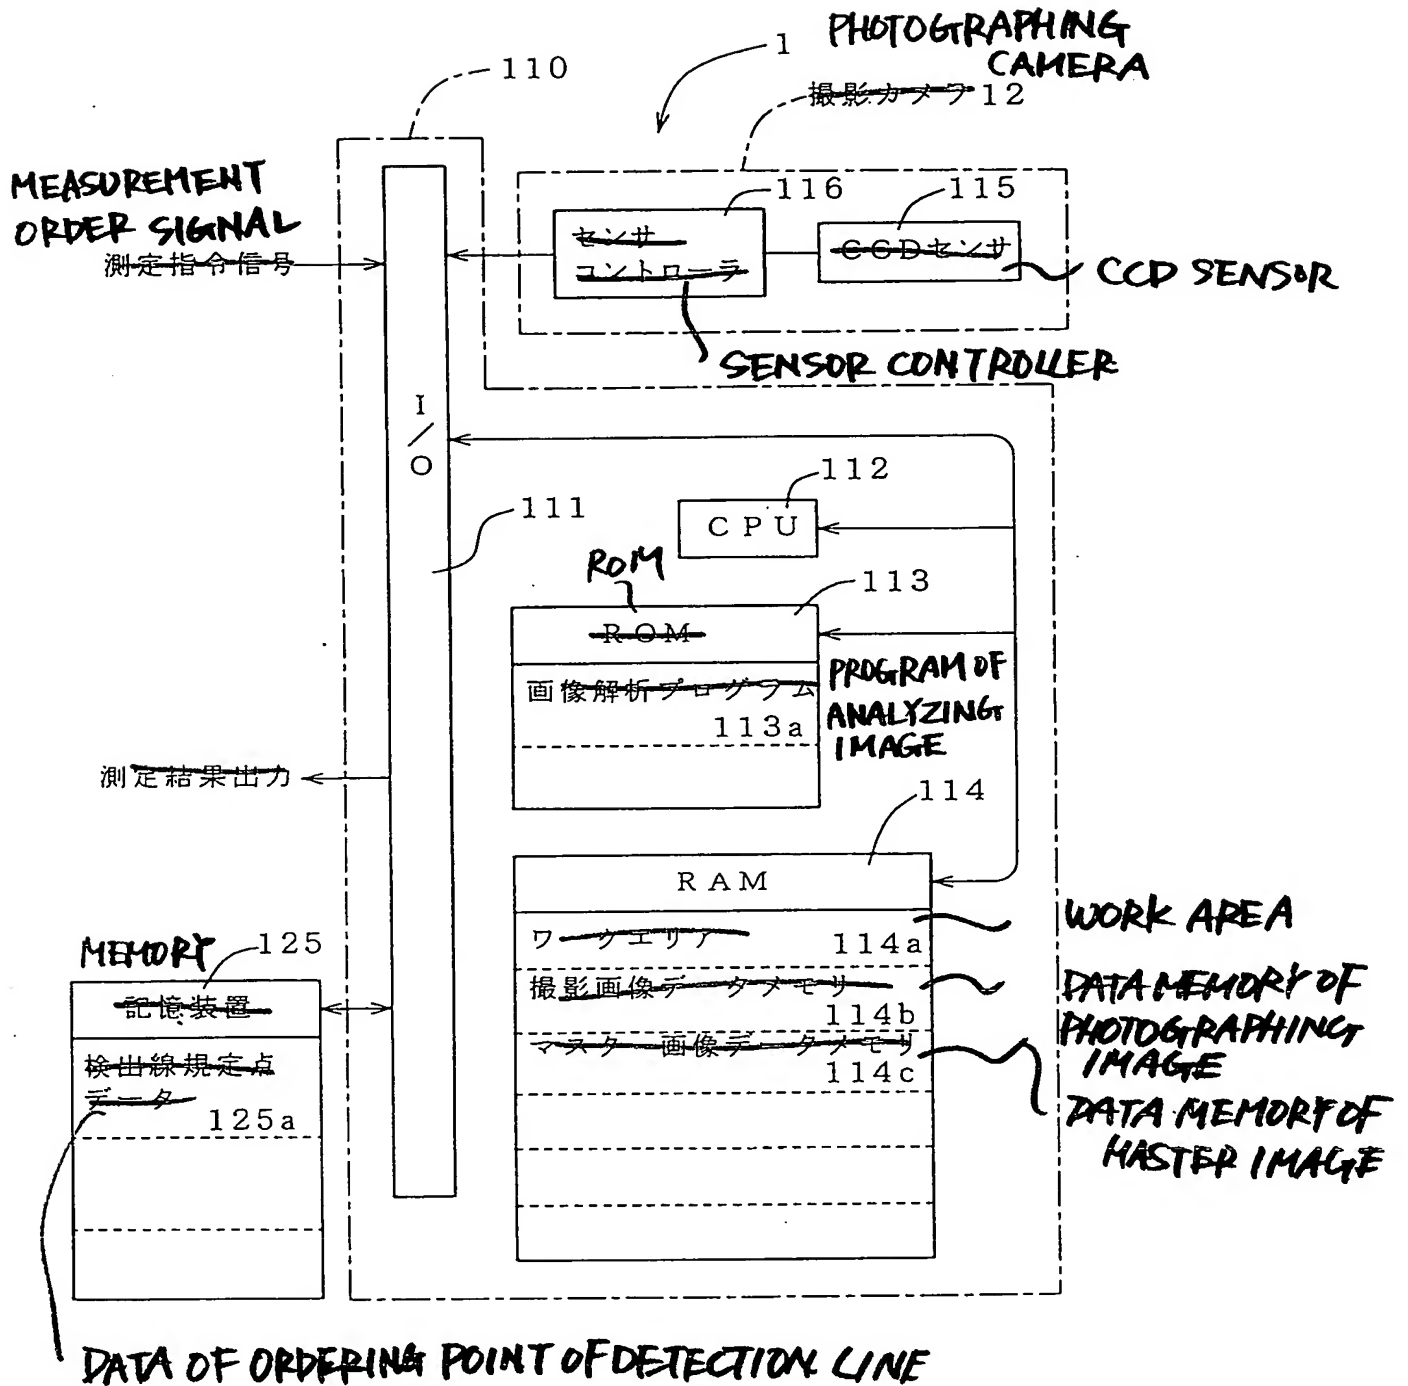 PHOTOGRAPHING
CAMERA
1
110
撮影カメラ 12
MEASUREMENT
ORDER SIGNAL
測定指令信号
116
115
センサ
コントローラ
CCDセンサ
CCD SENSOR
SENSOR CONTROLLER
I/O
112
CPU
111
ROM
113
ROM
画像解析プログラム
113a
PROGRAM OF
ANALYZING
IMAGE
測定結果出力
114
RAM
ワークエリア
114a
WORK AREA
撮影画像データメモリ
114b
DATA MEMORY OF
PHOTOGRAPHING
IMAGE
マスター画像データメモリ
114c
DATA MEMORY OF
MASTER IMAGE
MEMORY
125
記憶装置
検出線規定点
データ
125a
DATA OF ORDERING POINT OF DETECTION LINE